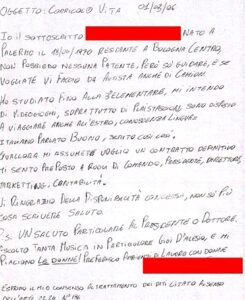 OGGETTO: CORRICOLO VITA 01/03/06
IO IL SOTTOSCRITTO NATO A
PALERMO IL 13/04/1970 RESIDANTE A BOLOGNA CENTRO,
NON POSSIEDO NESSUNA PATENTE, PERÒ SO GUIDARE, E SE
VOGLIATE VI FACCIO DA AUTISTA ANCHE DI CAMION
HO STUDIATO FINO ALLA 3 ELEMENTARE, MI INTENDO
DI VIDEOGIOCHI, SOPRATTUTTO DI PLAISTASCION, SONO DISPOSTO
A VIAGGIARE ANCHE ALL'ESTRO, CONOSCENZA LINGUE
ITALIANO PARLATO BUONO, SCRITTO COSÌ COSÌ.
QUALLORA MI ASSUMETE VOGLIO UN CONTRATTO DEFINITIVO
MI SENTO PREPOSTO A RUOLI DI COMANDO, PERSONALE, DIRETTORE,
MARKETTING, CONTABILITÀ.
VI RINGRAZIO DELLA DISPONIBILITÀ CONCESSA, NON SO PIÙ
COSA SCRIVERE SALUTO.
PS: UN SALUTO PARTICOLARE AL PRESIDENTE O DOTTORE,
ASCOLTA TANTA MUSICA IN PARTICOLARE GIGI D'ALESSIO, E MI
PIACIONO LE DONNE! PREFERISCO AMBIENTI DI LAVORO CON DONNE
ESPRIMO IL MIO COMENSO AL TRATTAMENTO DEI DATI
DELL'ART.